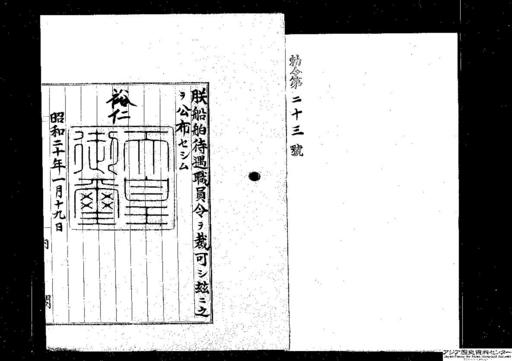 勅令第二十三號
朕船舶待遇職員令ヲ裁可シ玆ニ之
ヲ公布セシム
裕仁
天皇
御璽
昭和二十年一月十九日
内閣
アジア歴史資料センター